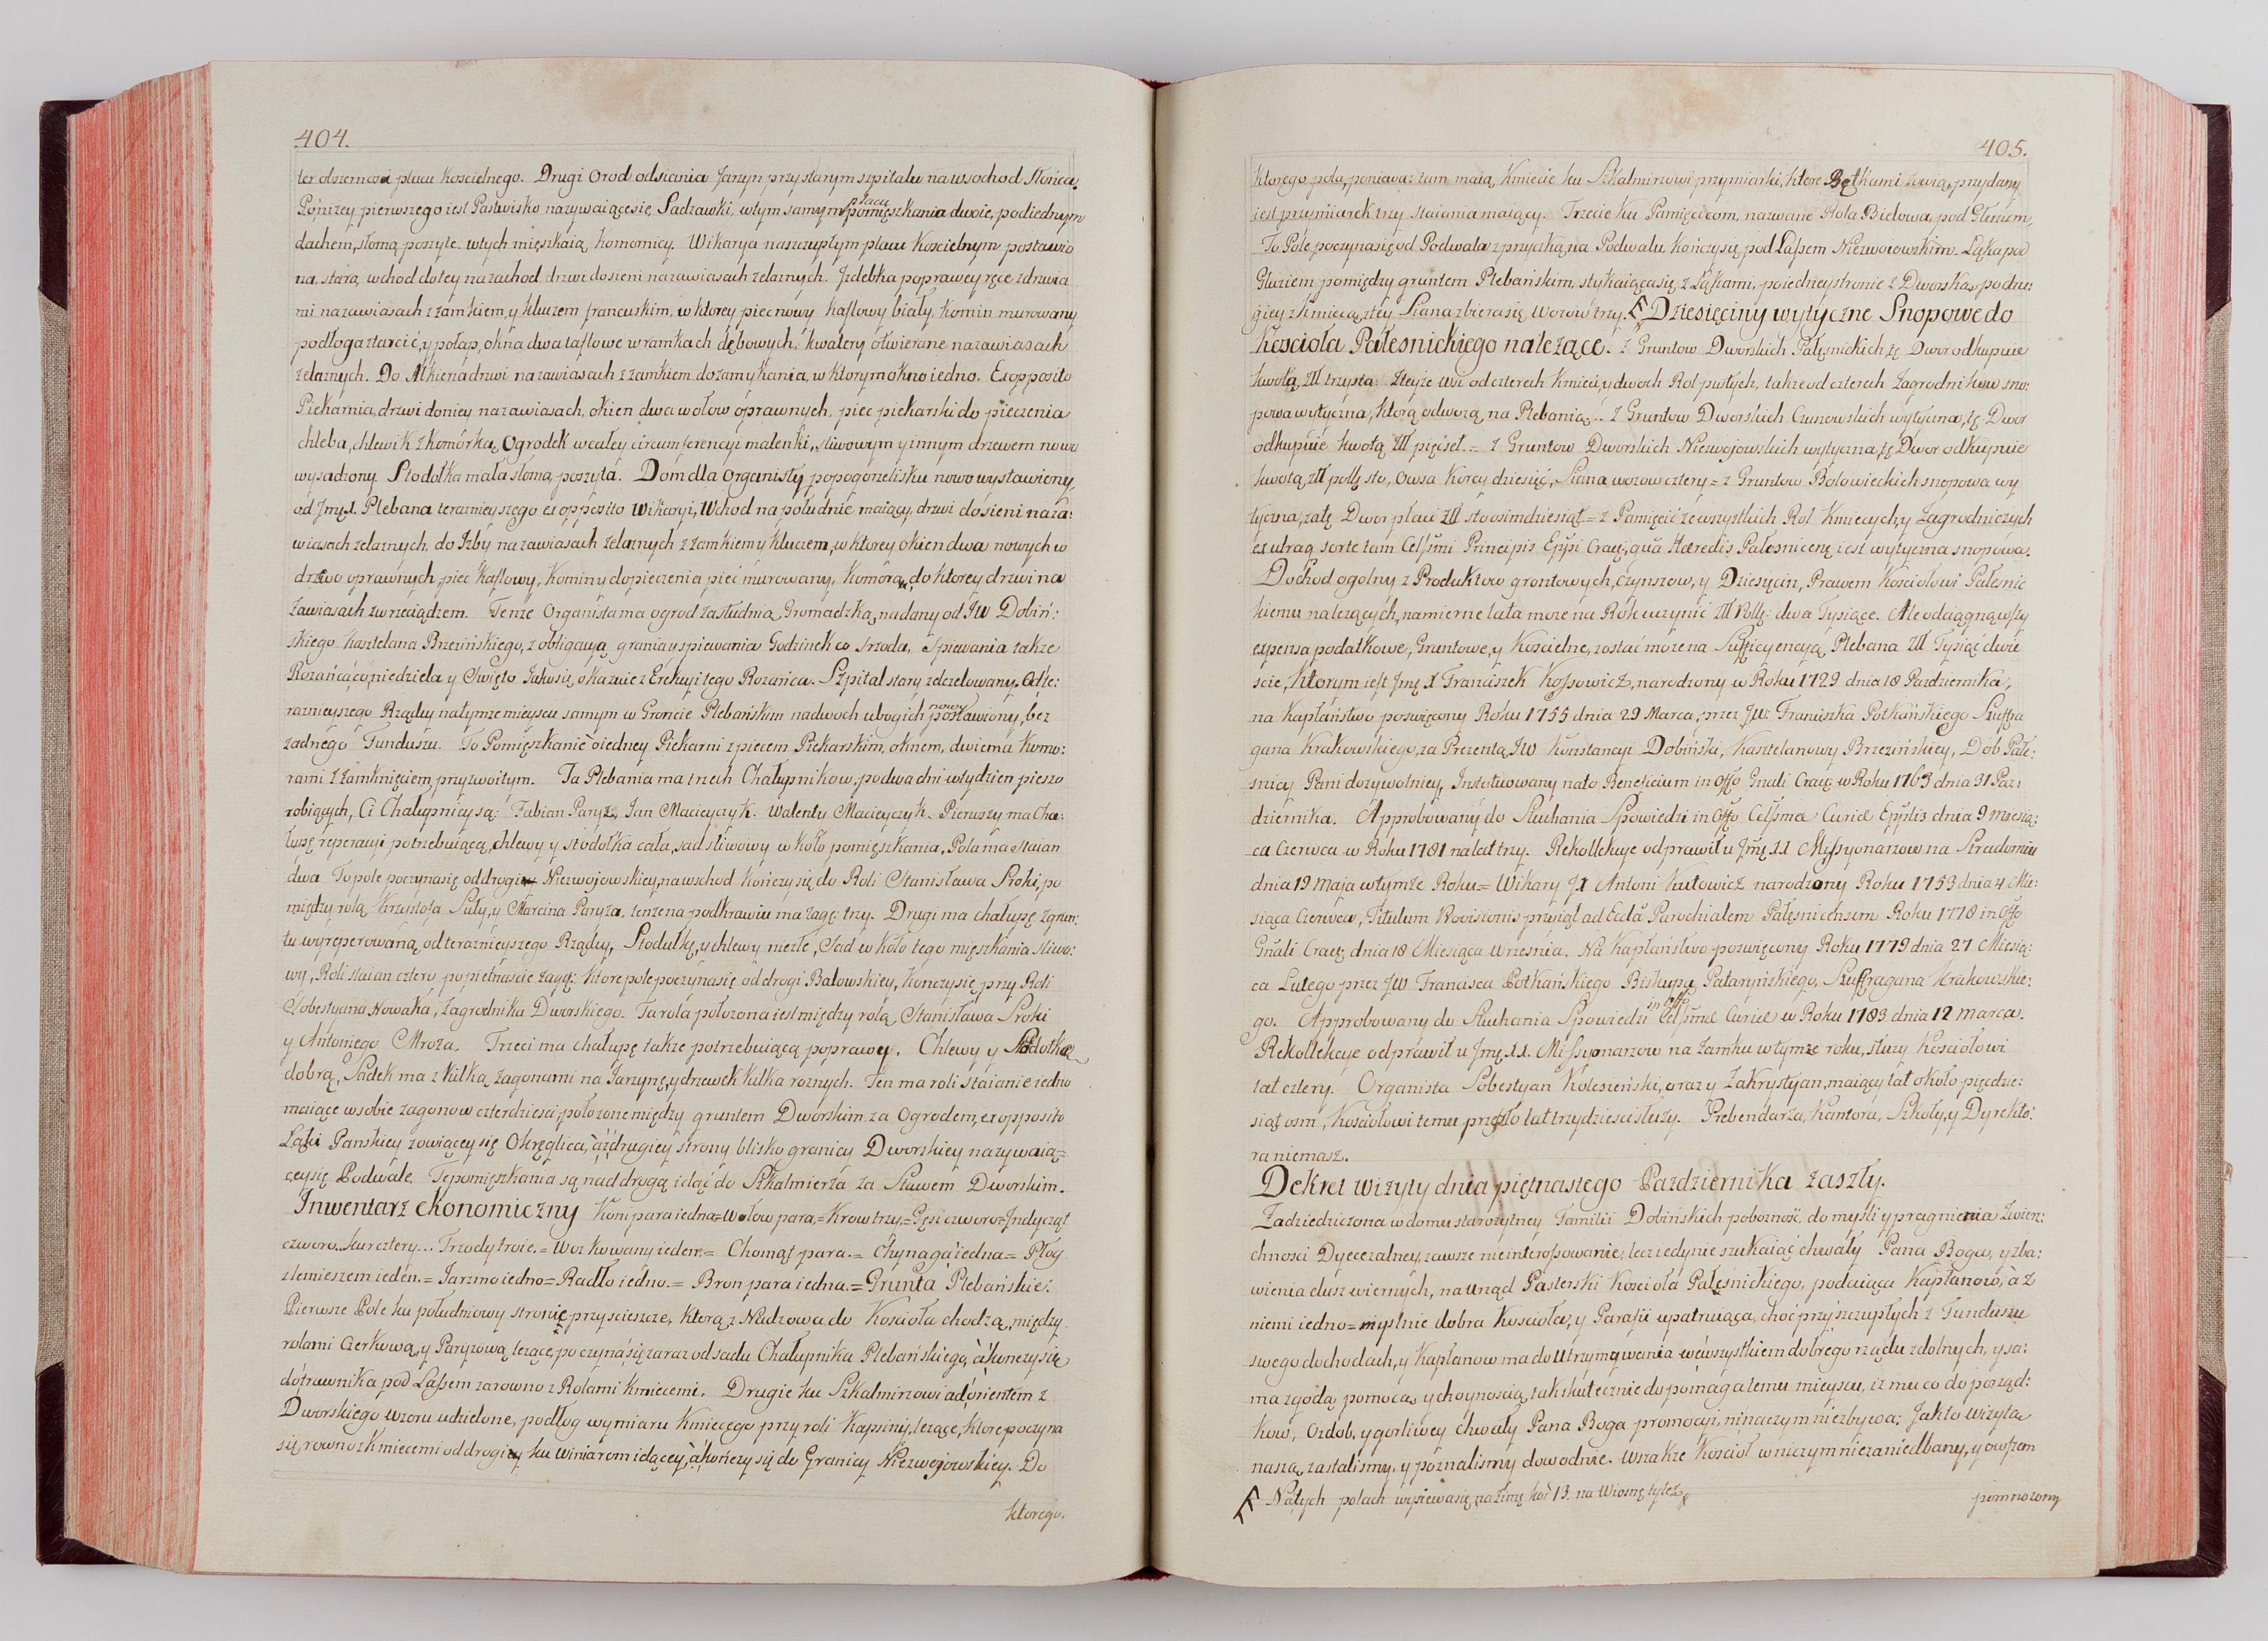 404.
ter obszernosci placu Koscielnego. Drugi Orod odsiania Jarzyn przy starym szpitalu na wschod Słońca.
Poniżey pierwszego iest Pastwisko nazywaiącesię Sadzawki, wtym samym placu pomięszkania dwoie, podiednym
dachem, słomą poszyte. wtych mięszkaią komornicy. Wikarya naszczupłym placu Koscielnym postawio
na, stara, wchod dotey nazachod drzwi dosieni nazawiasach żelaznych. Jzdebka poprawey ręce zdrzwia
mi nazawiasach z zamkiem, y kluczem francuskim, w ktorey piec nowy kaflowy biały, komin murowany
podłoga ztarcić, y połap, okna dwa taflowe w ramkach dębowych, kwatery otwierane nazawiasach
żelaznych. Do Alkierza drzwi nazawiasach z zamkiem do zamykania, w ktorym okno iedno. Exopposito
Piekarnia, drzwi doniey nazawiasach, okien dwa wołow oprawnych, piec piekarski do pieczenia
chleba, chlewik z komorką, Ogrodek wcałey circumferencyi malenki, sliwowym y innym drzewem nowo
wysadzony. Stodołka mała słomą poszyta. Dom dla Organisty popogorzelisku nowo wystawiony,
od Jmę X. Plebana teraznieyszego exopposito Wikaryi, Wchod na południe maiący, drzwi do sieni naza:
wiasach żelaznych, do Izby nazawiasach żelaznych z zamkiem y kluczem, w ktorey okien dwa nowych w
drzwo oprawnych, piec kaflowy, Kominy dopieczenia piec murowany, Komora, do ktorey drzwi na
zawiasach zwrzeciądzem. Tenze Organista ma ogrod za studnią Gromadzką, nadany od JW Dobiń:
skiego Kasztelana Brzezińskiego, z obligacyą grania y spiewania Godzinek co Srzoda, Spiewania takze
Rozańca co niedziela y Swięto Jako się okazuie z Erekcyi tego Rozańca. Szpital stary zdezelowany. Odte:
raznieyszego Rządcy natymze mieyscu samym w Groncie Plebańskim nadwoch ubogich nowy postawiony, bez
zadnego Funduszu. To Pomięszkanie oiedney Piekarni z piecem Piekarskim, oknem, dwiema komo:
rami z zamknięciem przyzwoitym. Ta Plebania ma trzech Chałupnikow, podwa dni wtydzień pieszo
robiących, Ci Chałupnicy są: Fabian Paryz, Jan Macieyczyk. Walenty Macieyczyk. Pierwszy ma Cha:
łupę reperacyi potrzebuiącą, chlewy y stodołka cała, sad sliwowy w koło pomięszkania, Pola ma staian
dwa To pole poczynasię od drogi Niezwojowskiey, na wschod kończy się do Roli Stanisława Sroki, po
między rolą Krzysztofa Suły, y Marcina Paryza, tenze na podkrawiu ma zagę: trzy. Drugi ma chałupę zgrun:
tu wyreperowaną od teraznieyszego Rządcy, Stodułkę, y chlewy niezłe, Sad w koło tego mięszkania sliwo:
wy, Roli staian cztery popiętnascie zagę: ktore pole poczynasię od drogi Bałowskiey, kończysię przy Roli
Sobestyana Nowaka, Zagrodnika Dworskiego. Ta rola połozona iest między rolą Stanisława Sroki
y Antoniego Mroza. Trzeci ma chałupę takze potrzebuiącą poprawey. Chlewy y Stodołkę
dobrą, Sadek ma z kilką zagonami na Jarzynę, y drzewek kilka roznych. Ten ma roli staianie iedno
maiące wsobie zagonow czterdziesci połozone między gruntem Dworskim za Ogrodem, exopposito
Łąki Panskiey zowiącey się Okręglica, az drugiey strony blisko granicy Dworskiey nazywaią=
ceysię Podwale. Te pomięszkania są nad drogą idąc do Skalmierza za Stawem Dworskim.
Inwentarz ekonomiczny Koni para iedna=Wołow para.=Krow trzy.=Gęsi czworo=Indycząt
czworo..kur cztery... Trzody troie.= Woz kowany ieden.= Chomąt para.= Chynaga iedna= Płog
z lemieszem ieden.= Jarzmo iedno=Radło iedno.= Bron para iedna.= Grunta Plebańskie.
Pierwsze Pole ku południowy stronie przy scieszce, ktorą z Nadzowa do Kościoła chodzą, między
rolami Czerkową, y Paryzową lezące, poczyna się zaraz od sadu Chałupnika Plebańskiego, a konczy się
do trawnika pod Lassem zarowno z Rolami kmiecemi. Drugie ku Szkalmirzowi ad orientem z
Dworskiego wzoru udzielone, podług wymiaru Kmiecego przy roli Kapsiny, lezące, ktore poczyna
się rowno z kmiecemi od drogi ku Winiarom idącey, a kończy się do Granicy Niezwojowskiey. Do
ktorego.
405.
ktorego pola, poniewaz tam maią Kmiecie ku Szkalmirzowi przymiarki, ktore Bętkami zowią, przydany
iest przymiarek trzy staiania maiący. Trzecie ku Pamięcicom, nazwane Rola Bielowa, pod Głuziem,
To Pole poczynasię od Podwala z przyczką, na Podwalu, kończysię pod Lassem Niezwoiowskim. Łąka pod
Głuziem pomiędzy gruntem Plebańskim, stykaiącasię z Łąkami, poiedney stronie z Dworską, podru:
giey z kmiecą, ztey Siana zbierasię Wozow trzy. Dziesięciny wytyczne Snopowe do
Koscioła Pałesnickiego nalezące. z Gruntow Dworskich Pałęsnickich, tę Dwor odkupuie
kwotą Złł trzysta: Zteyze wsi od czterech Kmieci, y dwoch Rol pustych, takze od czterech Zagrodnikow sno:
powa wytyczna, ktorą odwozą na Plebanią... z Gruntow Dworskich Czuszowskich wytyczna, tę Dwor
odkupuie kwotą Złł pięćset.= z Gruntow Dworskich Niezwojowskich wytyczna, tę Dwor odkupuie
kwotą złł pollę sto, Owsa Korcy dziesięć, Siana wozow cztery = z Gruntow Bolowieckich snopowa wy
tyczna, zatę Dwor płaci Złł sto osimdziesiąt.= z Pamięcić ze wszystkich Rol Kmiecych y Zagrodniczych
ex utraq sorte tam Celssmi Principis Eppi Crac, quā Hæredis Pałesnicen iest wytyczna snopowa.
Dochod ogolny z Produktow grontowych, Czynszow, y Dziesięcin, Prawem Kosciołowi Pałesnic
kiemu nalezących, namierne lata moze na Rok uczynić Złł Pollę: dwa Tysiące. Ale odciągnąwszy
expensa podatkowe, Gruntowe, y Koscielne, zostać moze na Sufficyencyą Plebana Złł Tysiąc dwie
scie, ktorym iest Jmę X Franciszek Kossowicz, narodzony w Roku 1729 dnia 18 Pazdziernika,
na Kapłaństwo poswięcony Roku 1755 dnia 29 Marca, przez JW: Franciszka Potkańskiego Suffra
gana Krakowskiego, za Prezentą JW Konstancyi Dobiński, Kasztelanowy Brzezińskiey, Dob Pałe:
snicy Pani dozywotniey, Instytuowany nato Beneficium in Offo Gnali Crac: w Roku 1763 dnia 31 Paz:
dziernika. Approbowany do Słuchania Spowiedzi in Offo Celssmæ Curiæ Epplis dnia 9 miesią:
ca Czerwca w Roku 1781 na lat trzy. Rekollekcye odprawił u Jmę XX Missyonarzow na Stradomiu
dnia 19 Maja wtymze Roku= Wikary JX Antoni Kutowicz narodzony Roku 1753 dnia 4 Mie:
siąca Czerwca, Titulum Provisionis przyiął ad Eccla Parochialem Pałęsnicensem Roku 1778 in Offo
Gnali Crac; dnia 18 Miesiąca Wrzesnia. Na Kapłaństwo poswięcony Roku 1779 dnia 27 Miesią:
ca Lutego przez JW Francisca Potkańskiego Biskupa Pataryńskiego, Suffragana Krakowskie:
go. Approbowany do Słuchania Spowiedzi in Offo Celssmæ Curiæ w Roku 1783 dnia 12 Marca.
Rekollekcye odprawił u Jmę XX. Missyonarzow na Zamku wtymze roku, słuzy Kosciołowi
lat cztery. Organista Sobestyan Koleszeński, oraz y Zakrystyan, maiący lat około pięcdzie:
siąt osm, Kosciołowi temu przeszło lat trzydziesci słuzy. Prebendarza, Kantora, Szkoły, y Dyrekto:
ra niemasz.
Dekret wizyty dnia piętnastego Pazdziernika zaszły.
Zadziedziczona w domu starozytney Familii Dobińskich pobozność, do mysli y pragnienia Zwierz:
chnosci Dyecezalney, zawsze nieinteressowanie, lecz iedynie szukaiąc chwały Pana Boga, y zba:
wienia dusz wiernych, na urząd Pasterski Koscioła Pałęsnickiego, podaiąca Kapłanow, a z
niemi iedno=myslnie dobra Koscioła, y Parafii upatruiąca, choć przy szczupłych z Funduszu
swego dochodach, y Kapłanow ma do utrzymywania wewszystkiem dobrego rządu zdolnych, y sa:
ma zgodą, pomocą, y choynoscią, tak skutecznie dopomaga temu mieyscu, iz mu co do porząd:
kow, Ozdob, y gorliwey chwały Pana Boga promocyi, ninaczym niezbywa; Jak to Wizyta
nasza, zastalismy, y poznalismy dowodnie. Wszakze Kościoł wniczym niezaniedbany, y owszem
Natych polach wysiewasię na Zimę kor 13. na Wiosnę tylez
pomnozony